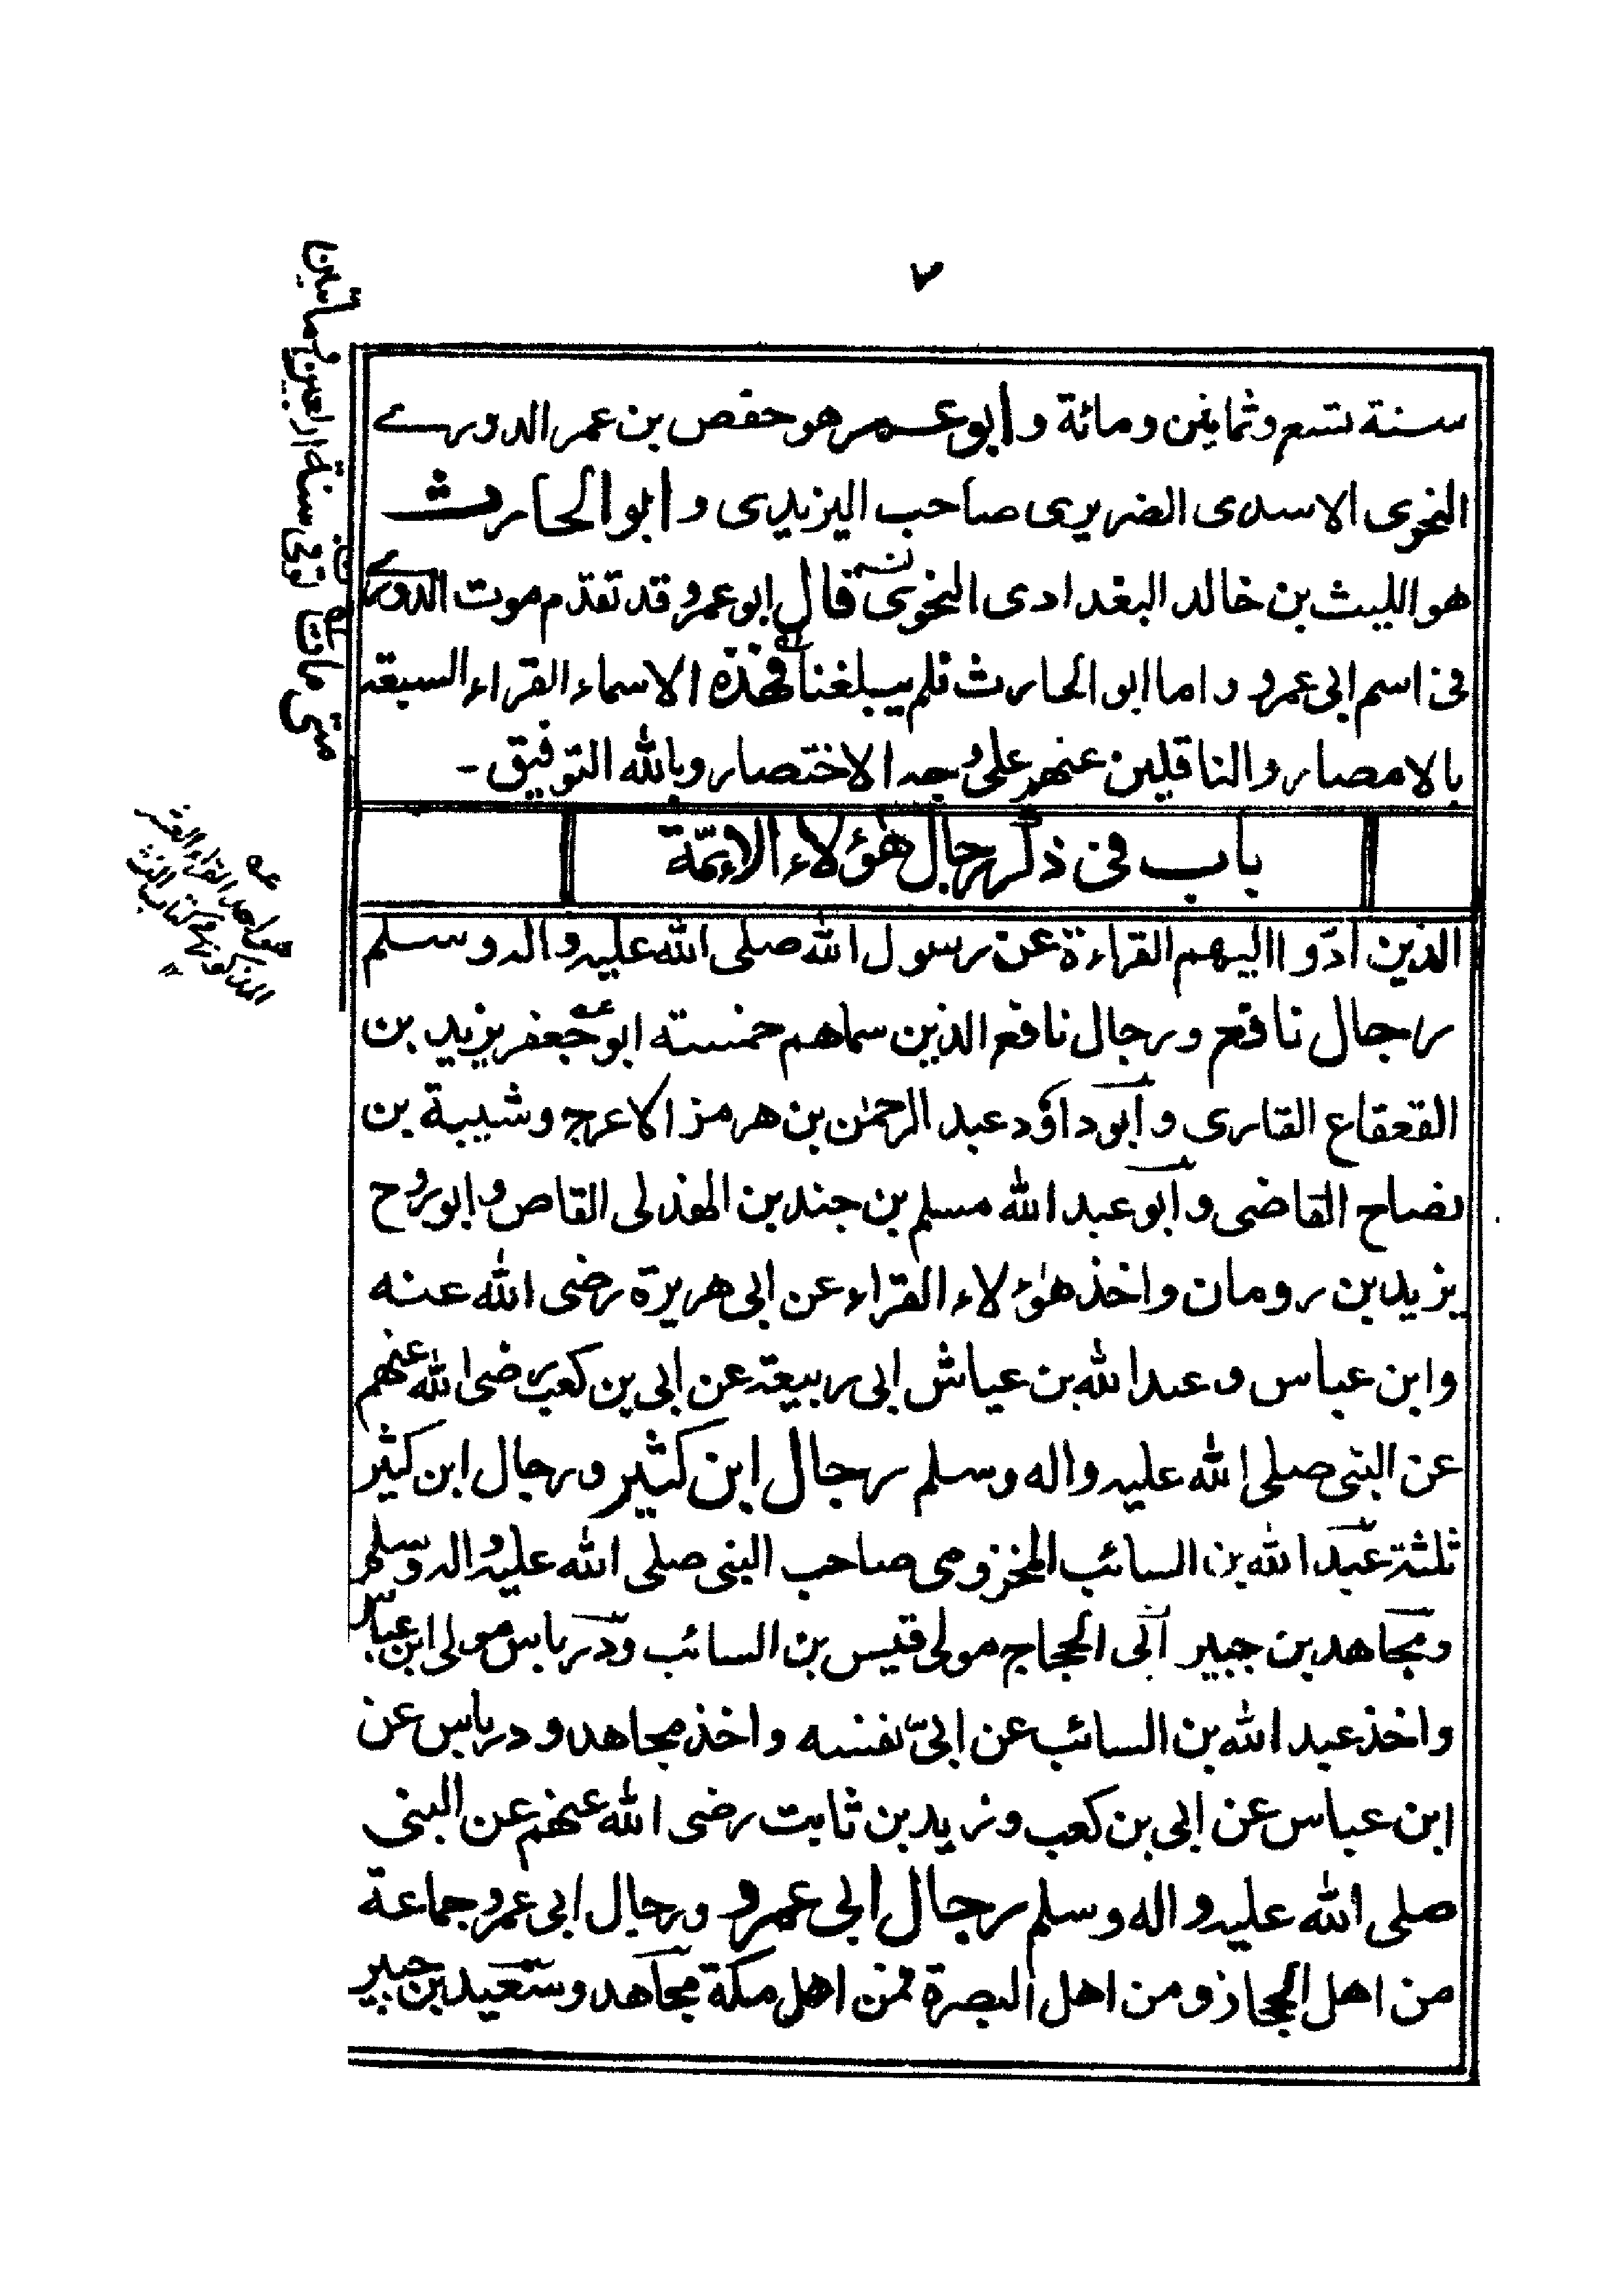 ٧
سنة تسع وثمانين ومائة و ابو عمر هو حفص بن عمر الدورے
النحوى الاسدى الضريرى صاحب اليزيدى و ابو الحارث
هو الليث بن خالد البغدادى النحوى قال ابو عمرو قد تقدم موت الدورے
فى اسم ابى عمرو و اما ابو الحارث فلم يبلغنا فهذه الاسماء القراء السبعة
بالامصار و الناقلين عنهم على وجه الاختصار وبالله التوفيق -
باب فى ذكر رجال هٰؤلاء الائمّة
الذين ادّوا اليهم القراءة عن رسول الله صلى الله عليه و اله وسلم
رجال نافع ورجال نافع الذين سماهم خمسة ابو جعفر يزيد بن
القعقاع القارى و ابو داؤد عبد الرحمٰن بن هرمز الاعرج و شيبة بن
نصاح القاضى و ابو عبد الله مسلم بن جندب الهذلى القاص و ابو روح
يزيد بن رومان واخذ هٰؤلاء القراء عن ابى هريرة رضى الله عنه
وابن عباس و عبد الله بن عياش ابى ربيعة عن ابى بن كعب رضى الله عنهم
عن النبى صلى الله عليه واله وسلم رجال ابن كثير ورجال ابن كثير
ثلثة عبد الله بن السائب المخزومى صاحب النبى صلى الله عليه و اله وسلم
ومجاهد بن جبير ابى الحجاج مولى قيس بن السائب ودرباس مولى ابن عباس
واخذ عبد الله بن السائب عن ابىّ نفسه واخذ مجاهد و درباس عن
ابن عباس عن ابى بن كعب وزيد بن ثابت رضى الله عنهم عن النبى
صلى الله عليه و اله وسلم رجال ابى عمرو ورجال ابى عمرو جماعة
من اهل الحجاز و من اهل البصرة فمن اهل مكة مجاهد وسعيد بن جبير